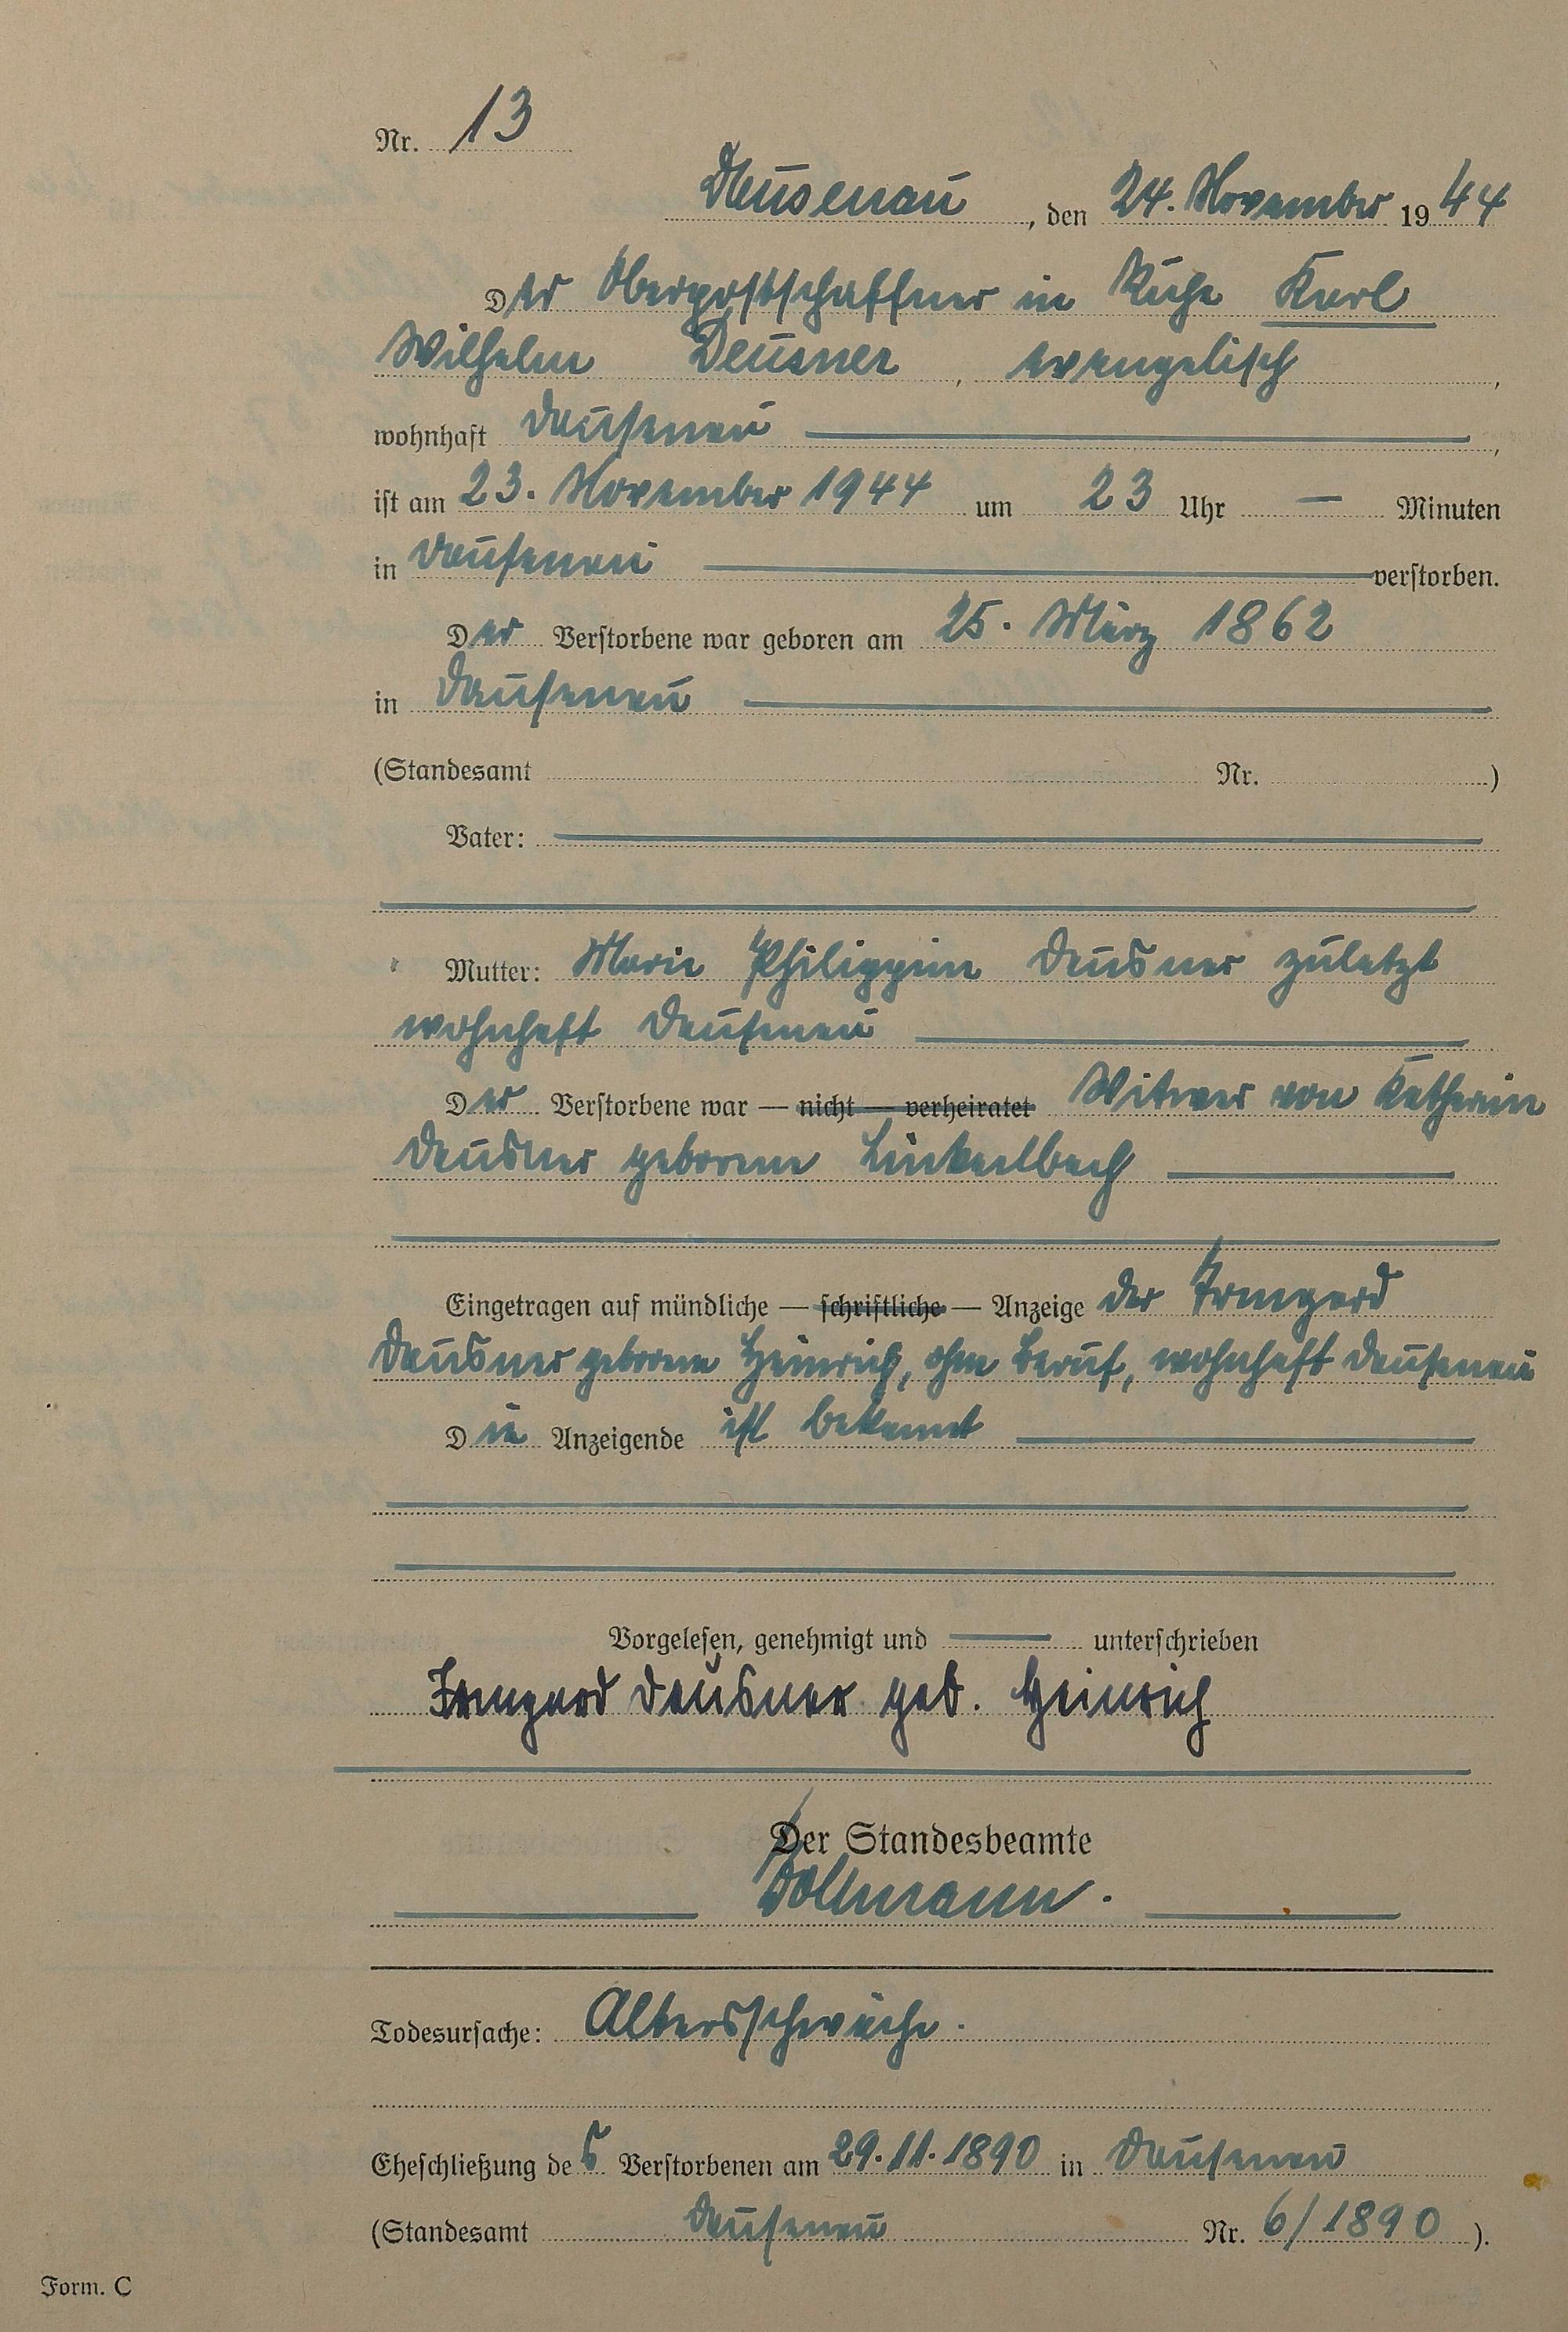 Nr. 13
Dausenau, den 24. November 1944
Der Oberpostschaffner in Ruhe Karl
Wilhelm Deusner, evangelisch,
wohnhaft Dausenau,
ist am 23. November 1944 um 23 Uhr — Minuten
in Dausenau verstorben.
Der Verstorbene war geboren am 25. März 1862
in Dausenau
(Standesamt Nr. )
Vater:
Mutter: Marie Philippine Deusner zuletzt
wohnhaft Dausenau
Der Verstorbene war — nicht — verheiratet Witwer von Katharine
Deusner geborene Linkenbach
Eingetragen auf mündliche — schriftliche — Anzeige der Irmgard
Deusner geborene Heinrich, ohne Beruf, wohnhaft Dausenau
Die Anzeigende ist bekannt
Vorgelesen, genehmigt und — unterschrieben
Irmgard Deusner geb. Heinrich
Der Standesbeamte
Todesursache: Altersschwäche.
Eheschließung des Verstorbenen am 29.11.1890 in Dausenau
(Standesamt Dausenau Nr. 6/1890 ).
Form. C